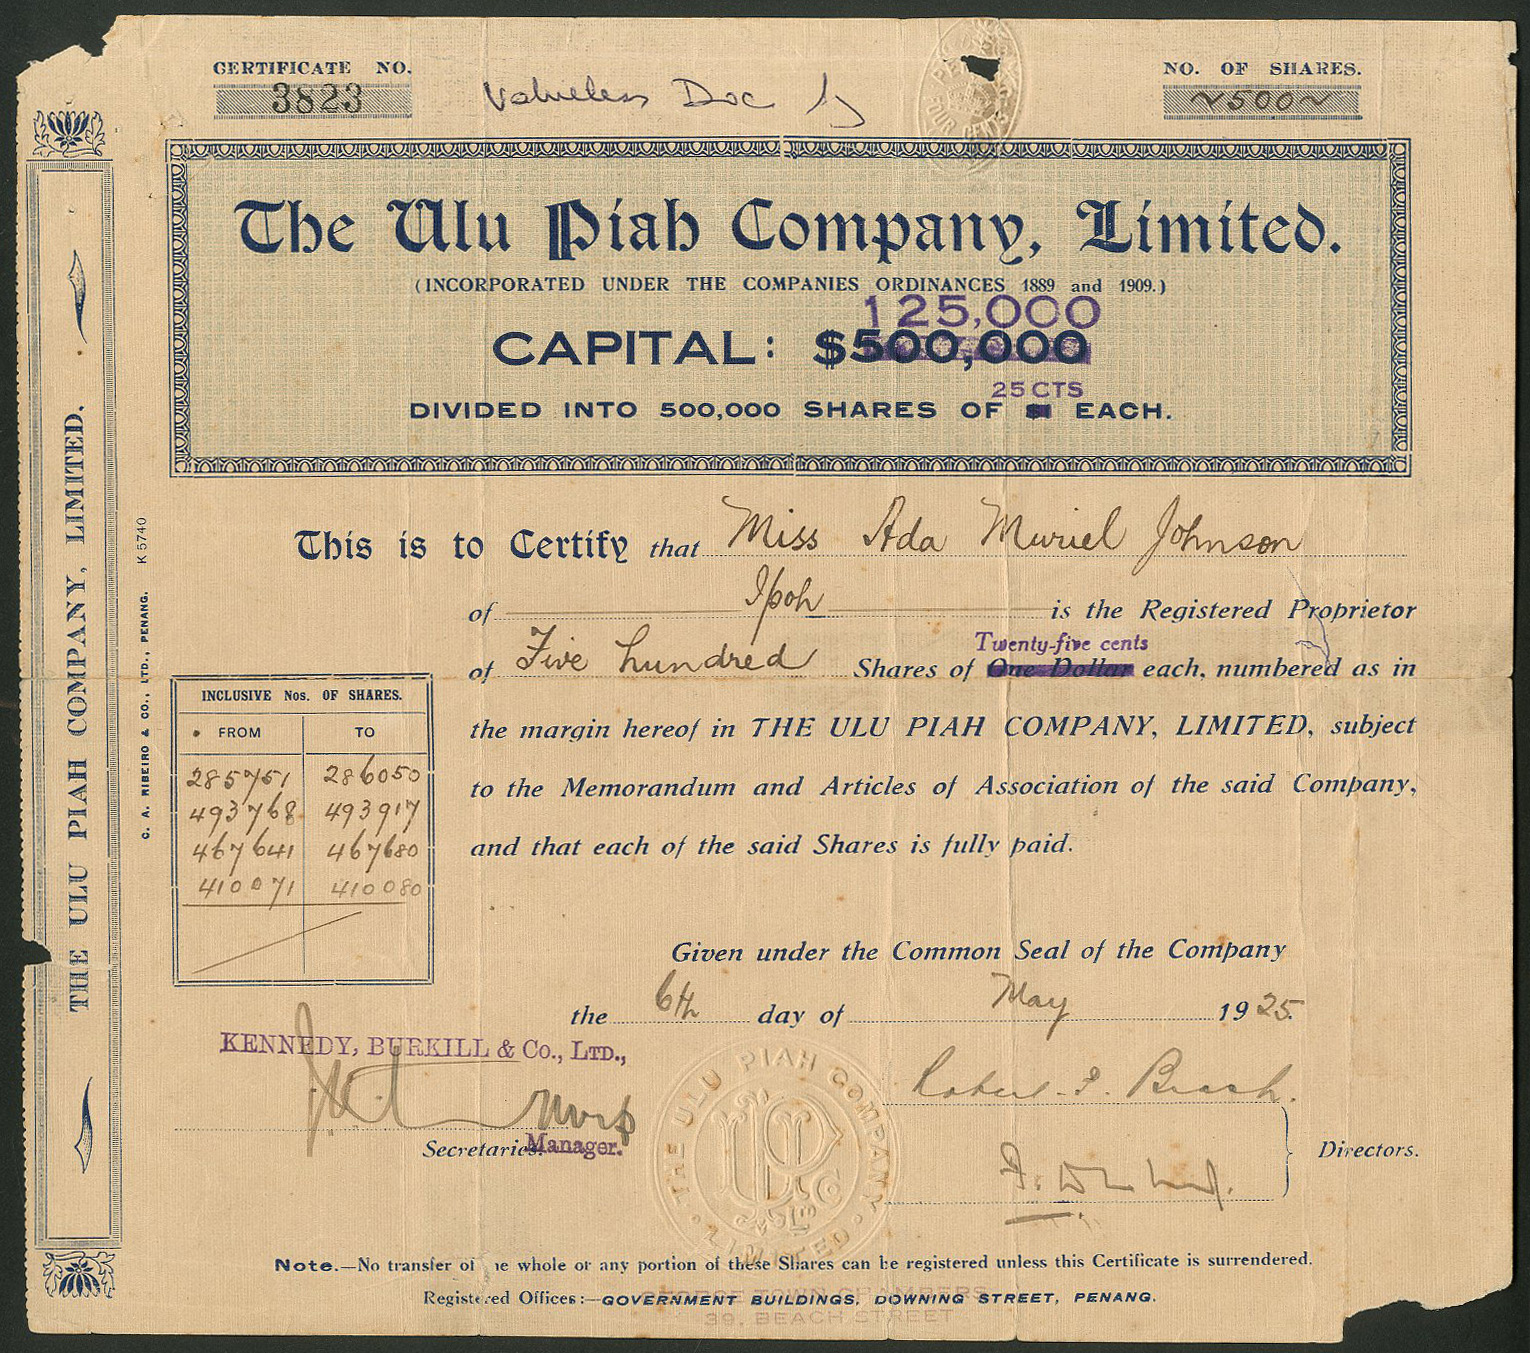 CERTIFICATE NO.
3823
Valueless Doc
NO. OF SHARES.
~500~
The Ulu Piah Company, Limited.
(INCORPORATED UNDER THE COMPANIES ORDINANCES 1889 and 1909.)
125,000
CAPITAL: $500,000
25 CTS
DIVIDED INTO 500,000 SHARES OF $1 EACH.
This is to Certify that Miss Ada Muriel Johnson
of Ipoh is the Registered Proprietor
Twenty-five cents
of Five hundred Shares of One Dollar each, numbered as in
the margin hereof in THE ULU PIAH COMPANY, LIMITED, subject
to the Memorandum and Articles of Association of the said Company,
and that each of the said Shares is fully paid.
INCLUSIVE Nos. OF SHARES.
FROM TO
285751 286050
493768 493917
467641 467680
410071 410080
Given under the Common Seal of the Company
the 6th day of May 1925.
KENNEDY, BURKILL & Co., LTD.,
Robert F. Beach.
Secretaries.
Manager.
Directors.
THE ULU PIAH COMPANY
LIMITED
Note.—No transfer of he whole or any portion of these Shares can be registered unless this Certificate is surrendered.
GEORGE TOWN CHAMBERS
Registered Offices:—GOVERNMENT BUILDINGS, DOWNING STREET, PENANG.
39, BEACH STREET
THE ULU PIAH COMPANY, LIMITED.
C. A. RIBEIRO & CO., LTD., PENANG. K 5740